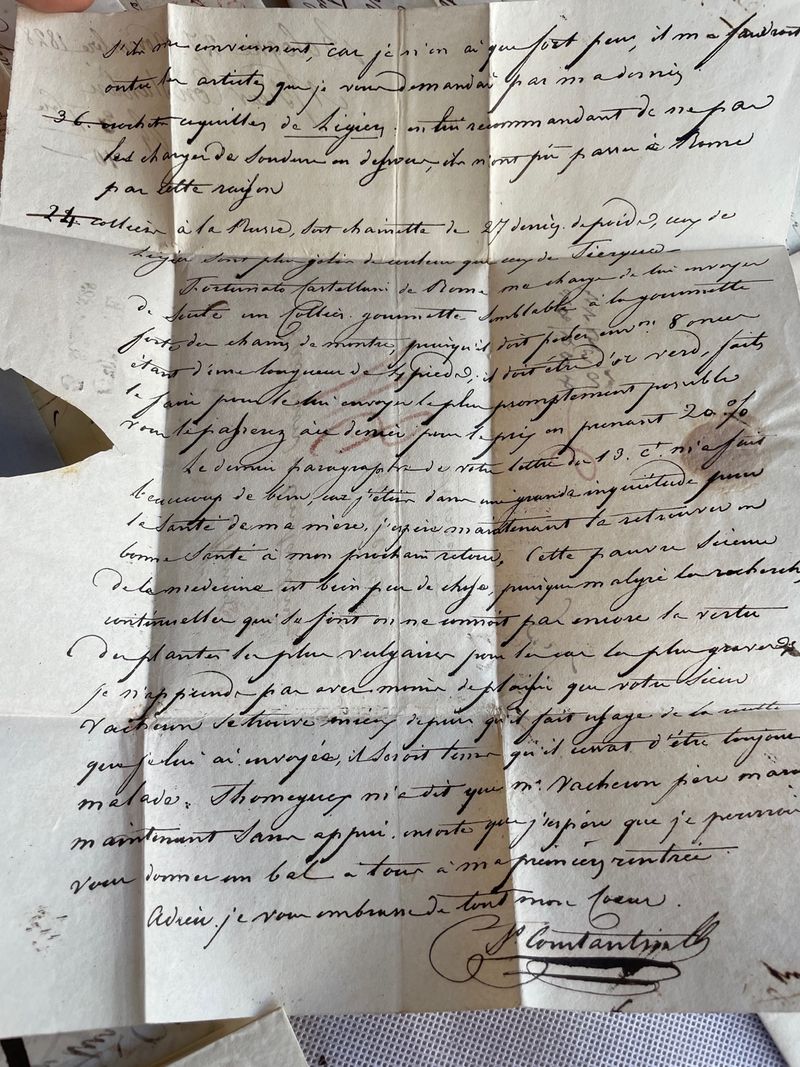 convienment, car je n'en ai que fort peu, il me faudroit
outre les articles que je vous demandai par ma dernière
36. aiguilles de Legier en lui recommandant de ne pas
les charger de soudure en dessous, ils n'ont pu passer à Rome
par cette raison
24 colliers à la Russe, soit chainette de 27 deniers de poids, ceux de
Legier sont plus jolis de couleur que ceux de
Fortunato Castellani de Rome me charge de lui envoyer
de suite un Collier gourmette semblable à la gourmette
forte des chaines de montre, puisqu'il doit peser 8 onces
étant d'une longueur de 4 pieds, il doit être d'or verd, faites
le faire pour le lui envoyer le plus promptement possible
vous le passerez à ce dernier pour le prix en prenant 20 %
Le dernier paragraphe de votre lettre du 13. ct m'a fait
beaucoup de bien, car j'étois dans une grande inquiétude pour
la santé de ma mère, j'espère maintenant la retrouver en
bonne santé à mon prochain retour. Cette pauvre Science
de la medecine est bien peu de chose, puisque malgré les recherches
continuelles qui se font on ne connoit pas encore la vertu
des plantes les plus vulgaires pour les cas les plus graves
je n'apprends pas avec moins de plaisir que votre Sieur
Vacheron se trouve mieux depuis qu'il fait usage de la
que je lui ai envoyée, il seroit tems qu'il cessat d'être toujours
malade. m'a dit que Mr. Vacheron père
maintenant sans appui. ensorte que j'espère que je pourrai
vous donner un bal à tous à ma première rentrée
Adieu. je vous embrasse de tout mon Coeur.
Constantin